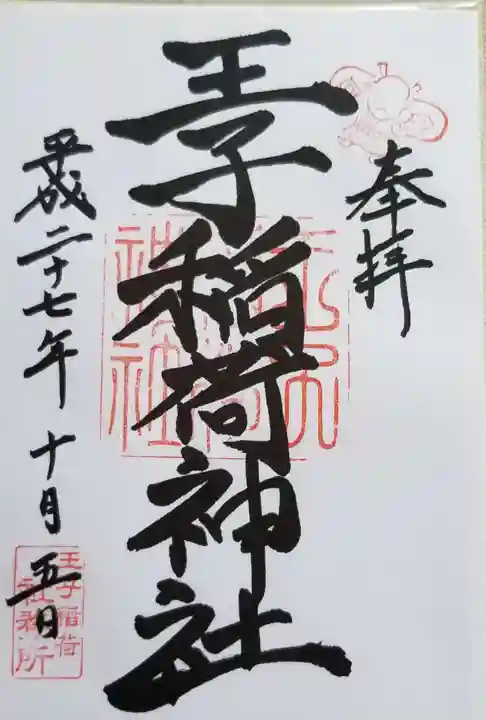 奉拝
王子稲荷神社
平成二十七年十月五日
王子稲荷
社務所